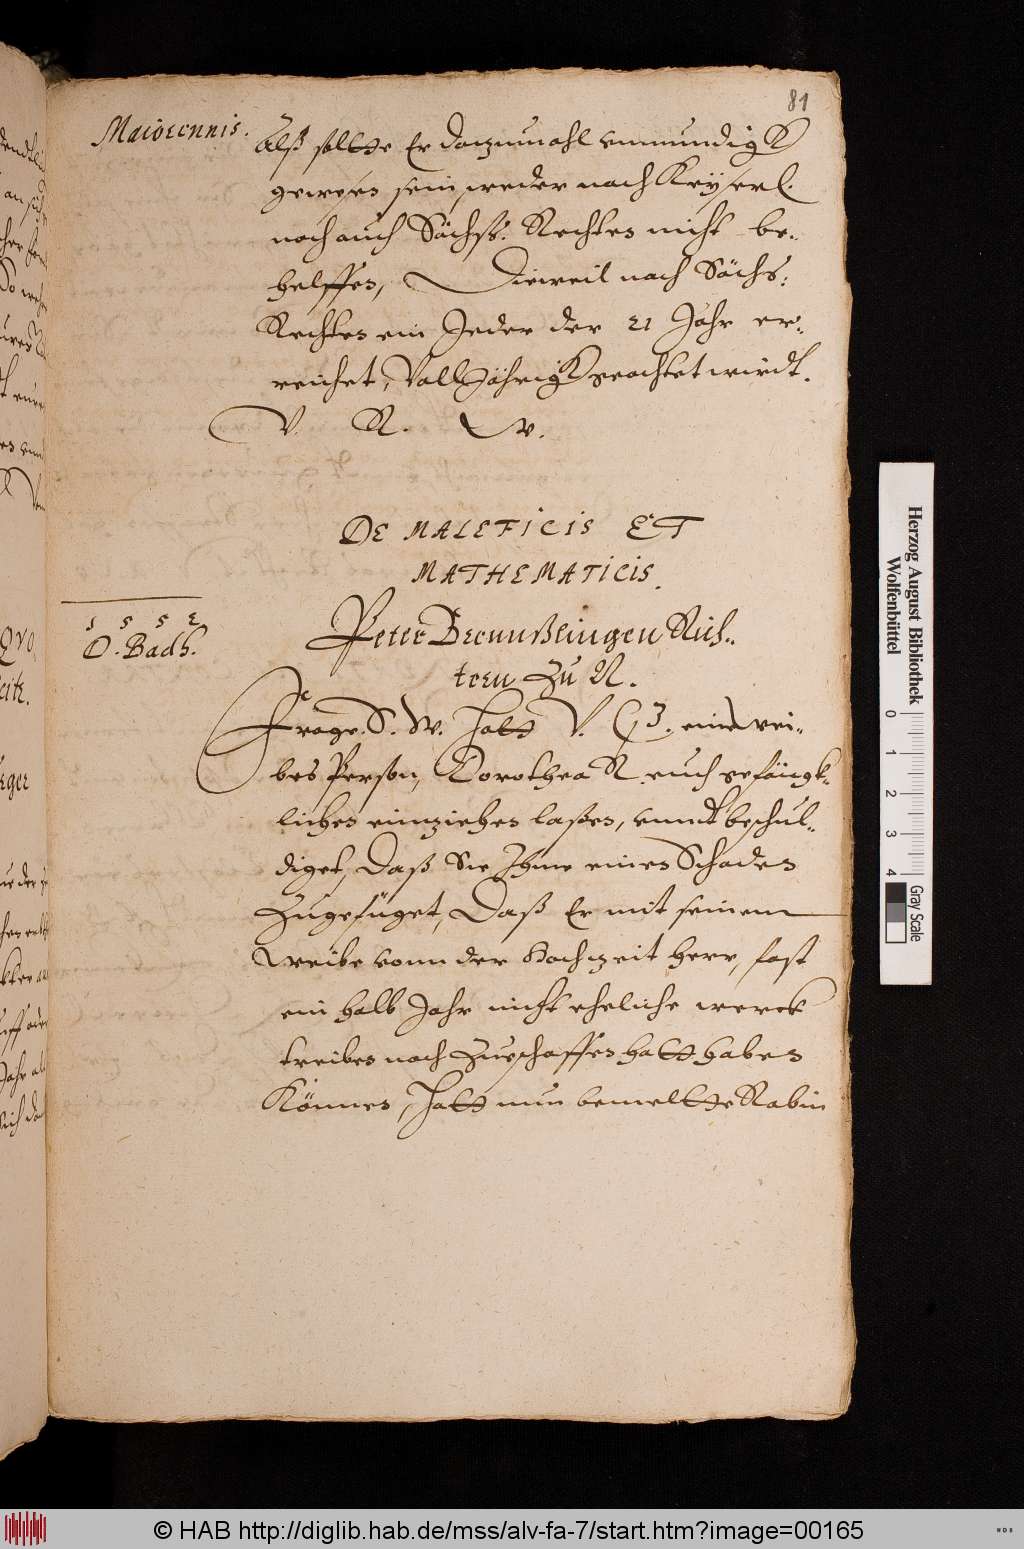 81
Maioꝛennis.
Alß solltte Er dazumahl vnmundigk
gewesen sein, weder nach Keyserl.
noch auch Sächss. Rechten nicht be-
helffen, Dieweil nach Sächs:
Rechten ein Jeder der 21 Jahr er-
reichet, Voll Jährigk geachtet wirdt.
V. R. W.
DE MALEFICIS ET
MATHEMATICIS.
1 5 5 2
D. Badh.
Peter Rich-
tern Zu N.
Frage. S. W. Hatt V. G. 3. eine wei-
bes Person, Dorothea N. euch gefängk-
lichen einziehen laßen, vnndt beschul-
diget, Daß Sie Ihme einen Schaden
Zugefüget, Daß Er mit seinem
weibe vonn der Hochzeit herr, fast
ein halb Jahr nicht eheliche werck
treiben noch Zueschaffen hatt haben
Können, Hatt nun bemeltte Rabin
Herzog August Bibliothek
Wolfenbüttel
0 1 2 3 4
Gray Scale
© HAB http://diglib.hab.de/mss/alv-fa-7/start.htm?image=00165